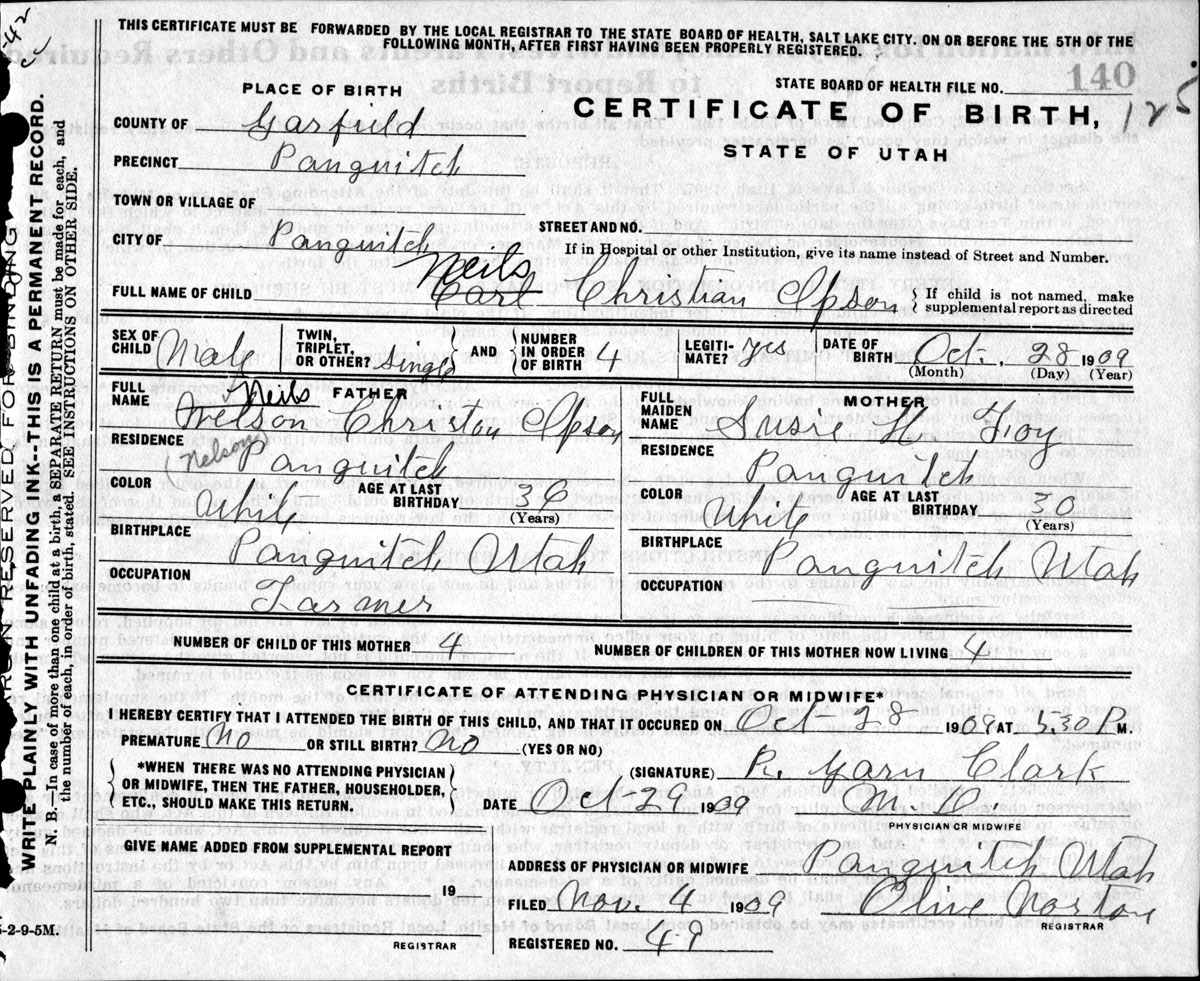 THIS CERTIFICATE MUST BE FORWARDED BY THE LOCAL REGISTRAR TO THE STATE BOARD OF HEALTH, SALT LAKE CITY, ON OR BEFORE THE 5TH OF THE
FOLLOWING MONTH, AFTER FIRST HAVING BEEN PROPERLY REGISTERED.
STATE BOARD OF HEALTH FILE NO. 140
PLACE OF BIRTH
CERTIFICATE OF BIRTH, 125
STATE OF UTAH
COUNTY OF Garfield
PRECINCT Panguitch
TOWN OR VILLAGE OF
STREET AND NO.
CITY OF Panguitch
If in Hospital or other Institution, give its name instead of Street and Number.
Neils
FULL NAME OF CHILD Carl Christian Ipson
If child is not named, make
supplemental report as directed
SEX OF CHILD Male
TWIN, TRIPLET, OR OTHER? single
AND NUMBER IN ORDER OF BIRTH 4
LEGITI-MATE? yes
DATE OF BIRTH Oct. 28 1909
(Month) (Day) (Year)
FATHER
Neils
FULL NAME Nelson Christian Ipson
(Nelson)
RESIDENCE Panguitch
COLOR White
AGE AT LAST BIRTHDAY 36
(Years)
BIRTHPLACE Panguitch Utah
OCCUPATION Farmer
MOTHER
FULL MAIDEN NAME Susie H Foy
RESIDENCE Panguitch
COLOR White
AGE AT LAST BIRTHDAY 30
(Years)
BIRTHPLACE Panguitch Utah
OCCUPATION
NUMBER OF CHILD OF THIS MOTHER 4
NUMBER OF CHILDREN OF THIS MOTHER NOW LIVING 4
CERTIFICATE OF ATTENDING PHYSICIAN OR MIDWIFE*
I HEREBY CERTIFY THAT I ATTENDED THE BIRTH OF THIS CHILD, AND THAT IT OCCURED ON Oct-28 1909 AT 5,30 P. M.
PREMATURE No OR STILL BIRTH? No (YES OR NO)
*WHEN THERE WAS NO ATTENDING PHYSICIAN
OR MIDWIFE, THEN THE FATHER, HOUSEHOLDER,
ETC., SHOULD MAKE THIS RETURN.
(SIGNATURE) R. Garn Clark
DATE Oct 29 1909 M. D.
PHYSICIAN OR MIDWIFE
GIVE NAME ADDED FROM SUPPLEMENTAL REPORT
19
REGISTRAR
ADDRESS OF PHYSICIAN OR MIDWIFE Panguitch Utah
FILED Nov. 4 1909 Olive Norton
REGISTRAR
REGISTERED NO. 49
MARGIN RESERVED FOR BINDING
WRITE PLAINLY WITH UNFADING INK--THIS IS A PERMANENT RECORD.
N. B.—In case of more than one child at a birth, SEPARATE RETURN must be made for each, and
the number of each, in order of birth, stated. SEE INSTRUCTIONS ON OTHER SIDE.
5-2-9-5M.